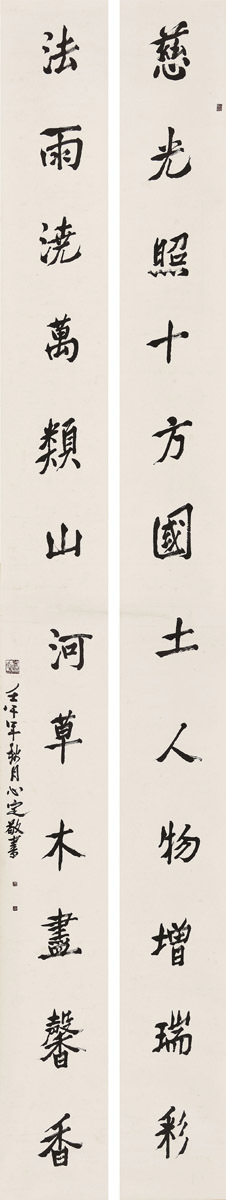 慈光照十方國土人物增瑞彩
法雨澆萬類山河草木盡馨香
壬午年秋月心定敬書